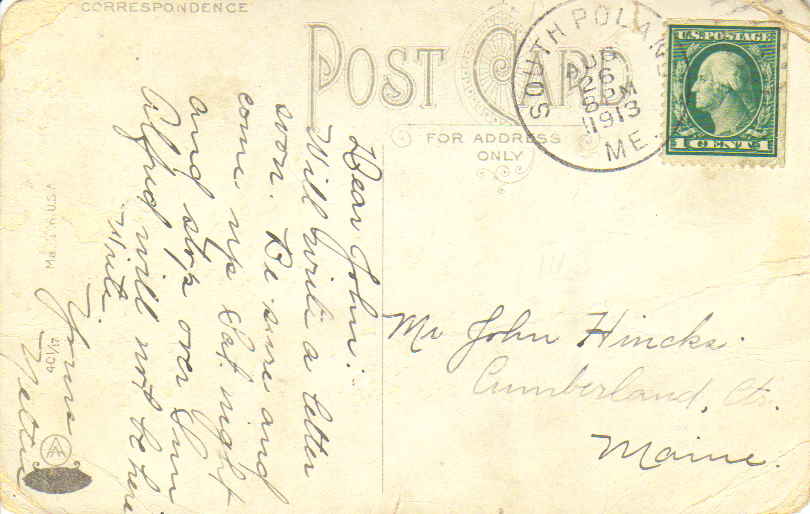 CORRESPONDENCE
POST CARD
FOR ADDRESS
ONLY
SOUTH POLAND
26
PM
1913
ME.
U.S. POSTAGE
1 CENTS 1
Dear John:
Will write a letter
soon. Be sure and
come up Sat. night
and stop over Sun
Alfred will not be here
Write.
Yours
Nettie
Mr John Hincks.
Cumberland, Ctr.
Maine.
U.S.A.